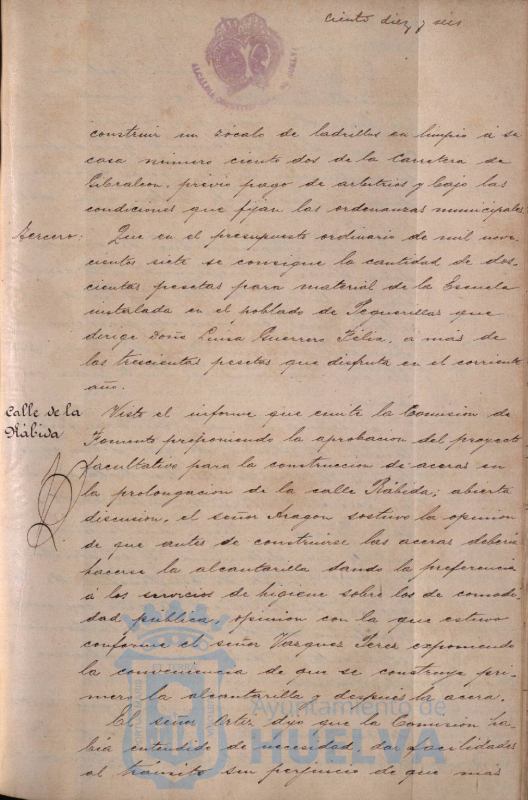 Ciento diez y seis
ALCALDIA CONSTITUCIONAL DE HUELVA
construir un zócalo de ladrillos en limpio á su
casa número ciento dos de la Carretera de
Gibraleon, previo pago de arbitrios y bajo las
condiciones que fijan las ordenanzas municipales.
tercero. Que en el presupuesto ordinario de mil nove-
cientos siete se consigne la cantidad de dos-
cientas pesetas para material de la Escuela
instalada en el poblado de Peguerillas que
dirige Doña Luisa Guerrero Félix, á más de
las trescientas pesetas que disfruta en el corriente
año.
Calle de la
Rábida
Visto el informe que emite la Comisión de
Fomento proponiendo la aprobacion del proyecto
facultativo para la construccion de aceras en
la prolongacion de la calle Rábida; abierta
discusion, el señor Aragon sostuvo la opinion
de que antes de construirse las aceras debería
hacerse la alcantarilla dando la preferencia
á los servicios de higiene sobre los de comodi-
dad pública, opinion con la que estuvo
conforme el señor Vazquez Perez exponiendo
la conveniencia de que se construya pri-
mero la alcantarilla y despues la acera.
El señor Ortiz dijo que la Comisión ha-
bía entendido de necesidad, dar facilidades
al tránsito sin perjuicio de que más
Ayuntamiento de
HUELVA